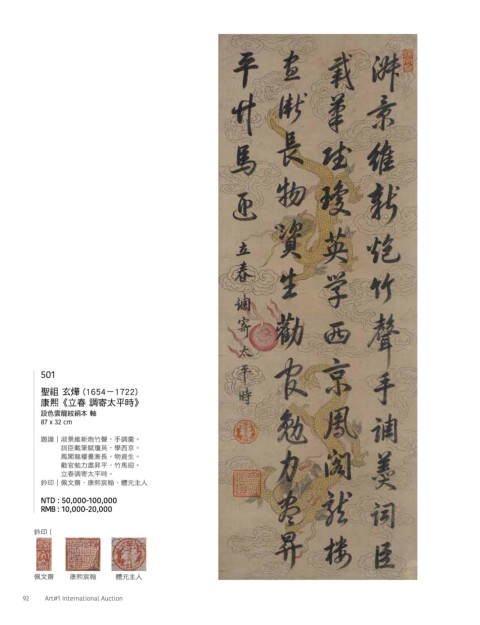 淑景維新炮竹聲手調羹詞臣
載筆賦瓊英学西京鳳閣龍樓
晝漸長物資生勸官勉力盡昇
平竹馬迎
立春 調寄太平時
501
聖祖 玄燁 (1654－1722)
康熙《立春 調寄太平時》
設色雲龍紋絹本 軸
87 x 32 cm
題識｜淑景維新炮竹聲，手調羹。
詞臣載筆賦瓊英，學西京。
鳳閣龍樓晝漸長，物資生。
勸官勉力盡昇平，竹馬迎。
立春調寄太平時。
鈐印｜佩文齋、康熙宸翰、體元主人
NTD : 50,000-100,000
RMB : 10,000-20,000
鈐印｜
佩文齋 康熙宸翰 體元主人
92 Art#1 International Auction